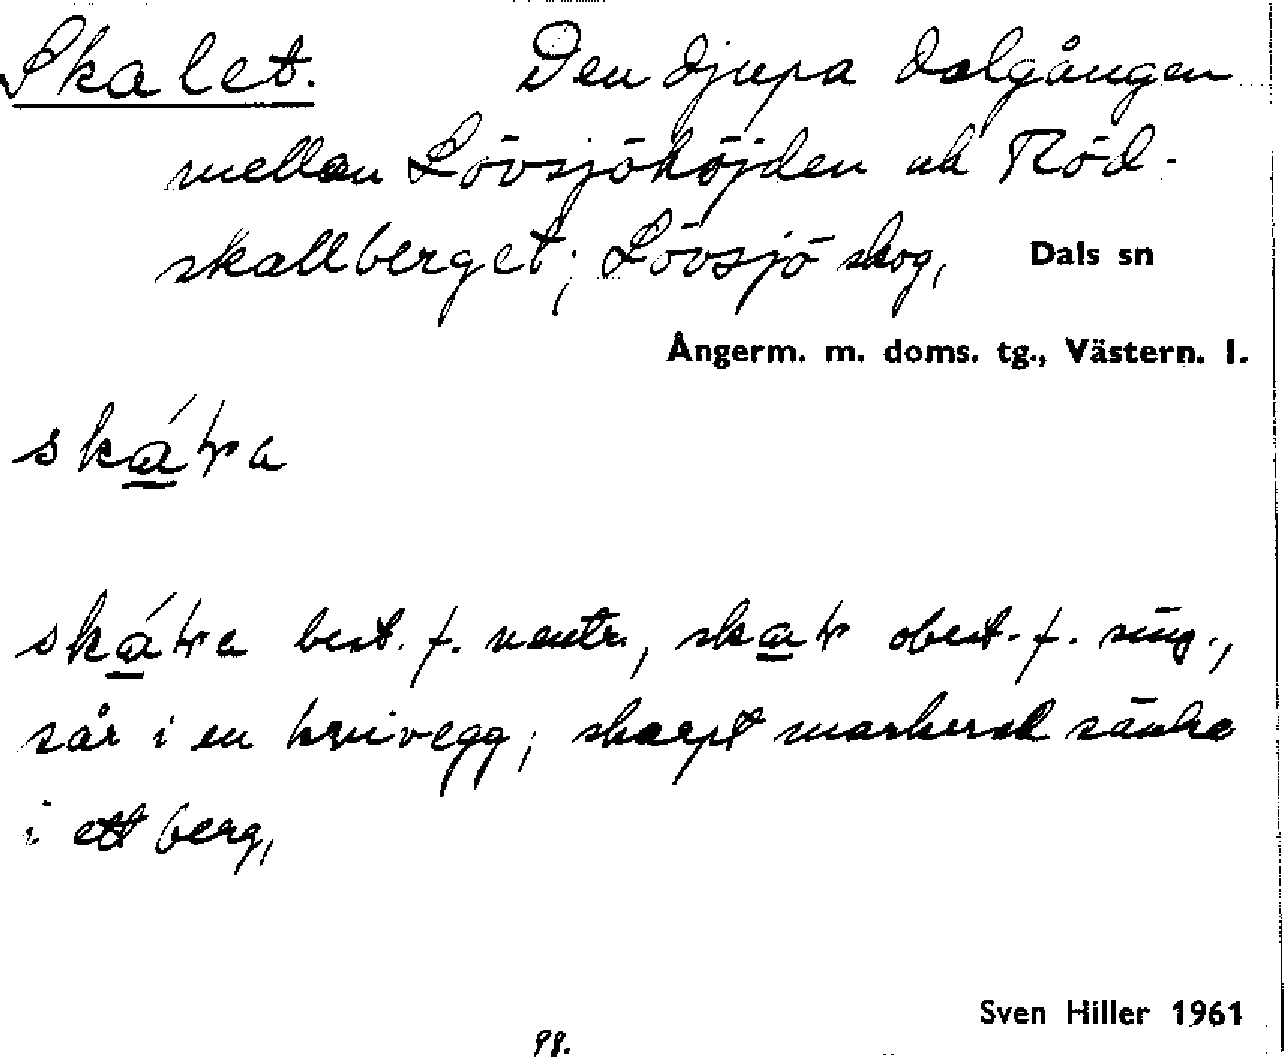 Skalet. Den djupa dalgången
mellan Lövsjöhöjden och Röd-
skallberget; Lövsjö skog, Dals sn
Ångerm. m. doms. tg., Västern. l.
skáɽa
skáɽa best. f. neutr., skaɽ obest. f. sing.,
sår i en knivegg; skarpt markerad sänka
i ett berg,
Sven Hiller 1961